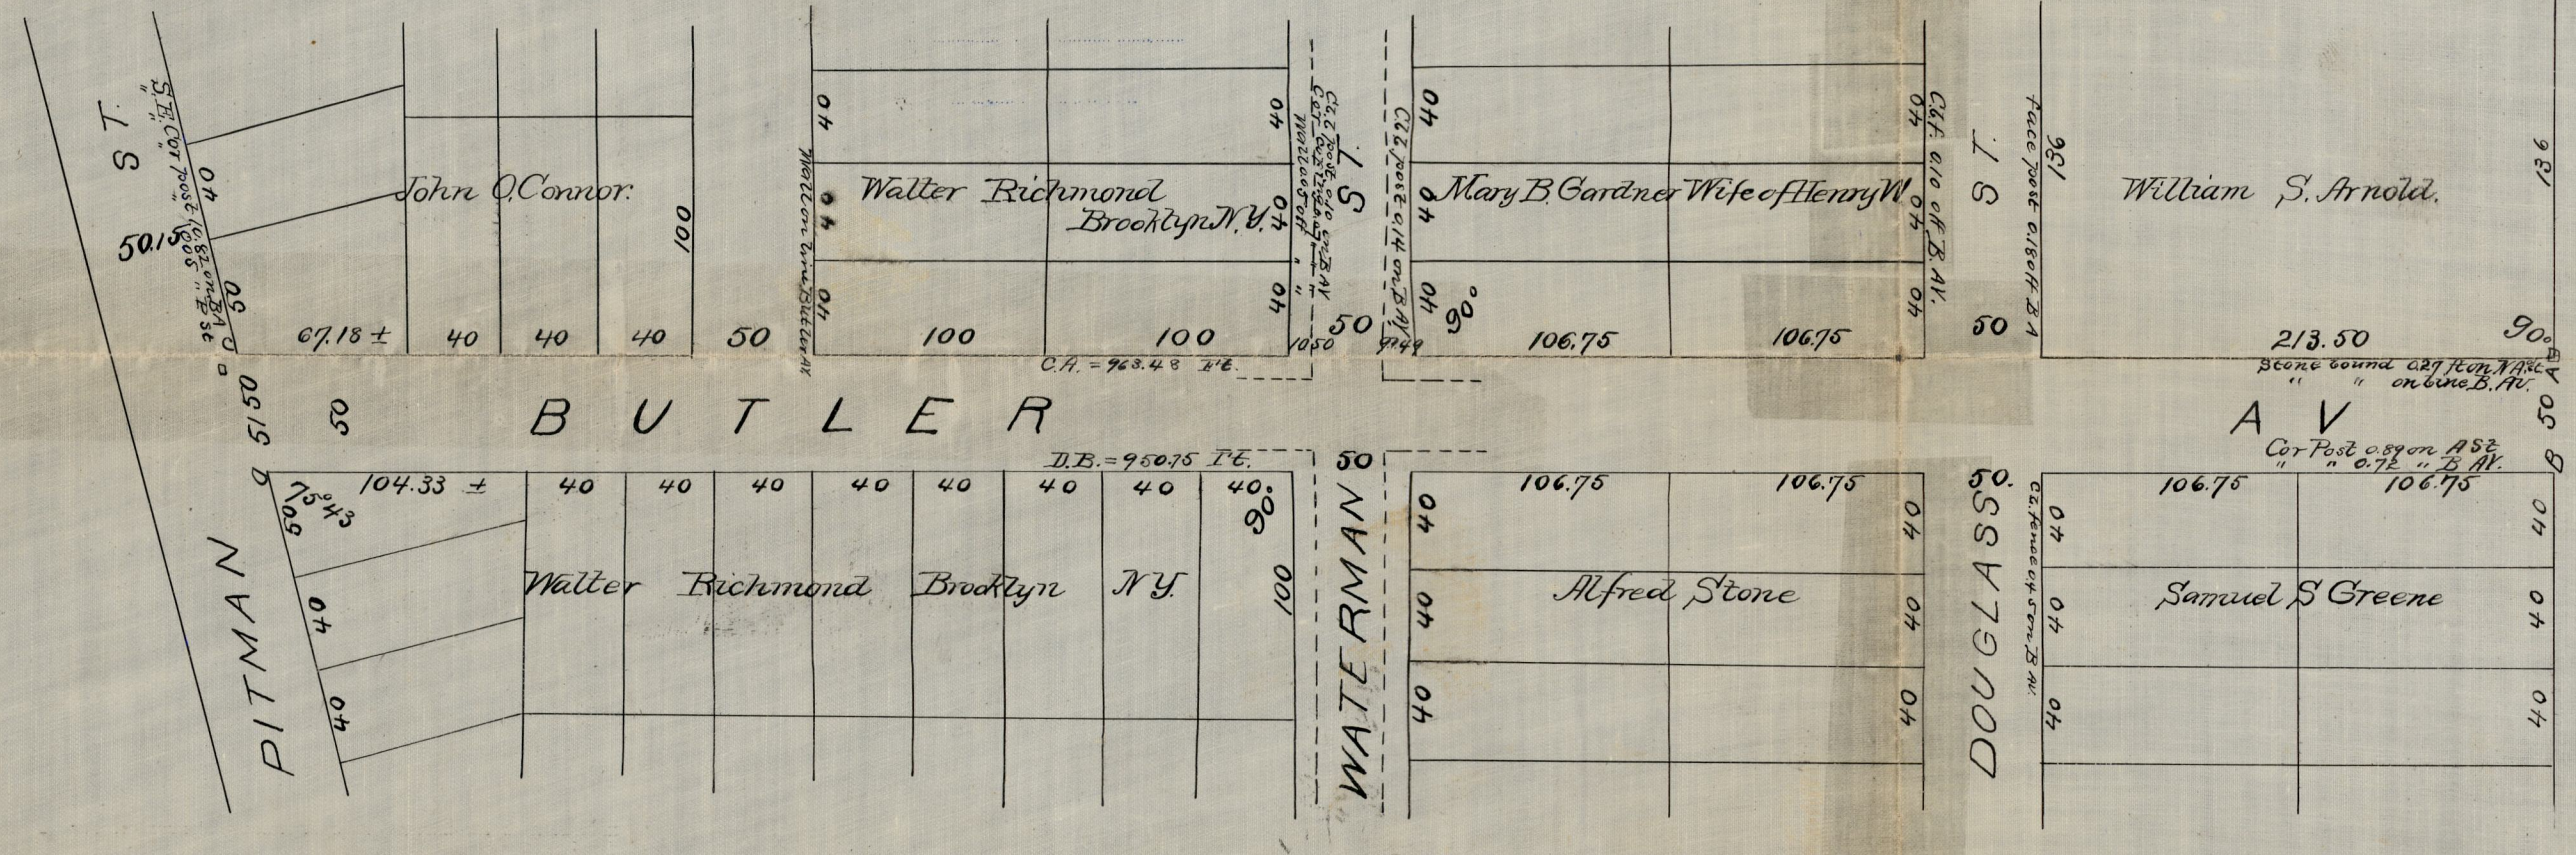 S T.
S.E. Cor post 0.82 on B A
" " " 0.05 " P St
50.15
40
50
John O.Connor.
100
67.18 ±
40
40
40
50
Wall on line Butler AV
40
40
40
Walter Richmond
Brooklyn N.Y.
40
40
40
100
100
C.A. = 963.48 F't.
Wall 0.05 off " "
10.50
S T.
50
9.49
40
40
40
90°
Mary B. Gardner Wife of Henry W.
106.75
106.75
40
40
40
C.L.f. 0.10 off B. AV.
S T.
50
face post 0.180 ff B A
136
William S. Arnold.
136
213.50
90°
Stone bound 0.27 ft on N A. St.
" " on line B. Av.
A
C
51 50
50
B U T L E R
A V
50
B
D
D.B. = 950.75 F't.
50
Cor Post 0.89 on A St
" " 0.72 " B AV.
PITMAN
104.33 ±
75°43
50
40
40
40
40
40
40
40
40
40
40.
90°
100
Walter Richmond Brooklyn N.Y.
WATERMAN
40
40
40
106.75
106.75
Alfred Stone
40
40
40
50.
DOUGLASS
C.L. fence 0.45 on B AV.
40
40
40
106.75
106.75
Samuel S Greene
40
40
40